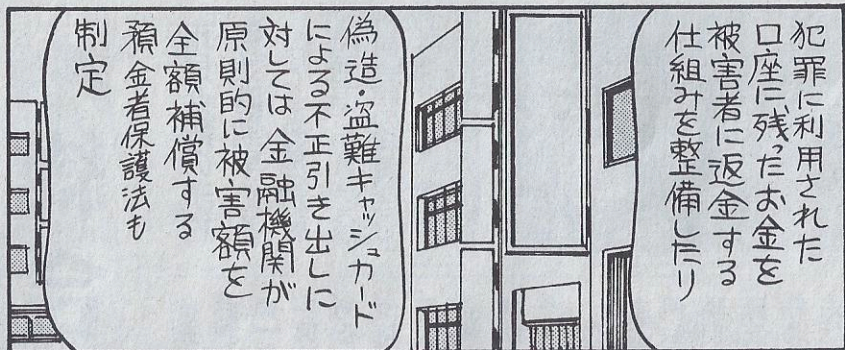 犯罪に利用された
口座に残ったお金を
被害者に返金する
仕組みを整備したり
偽造・盗難キャッシュカード
による不正引き出しに
対しては金融機関が
原則的に被害額を
全額補償する
預金者保護法も
制定